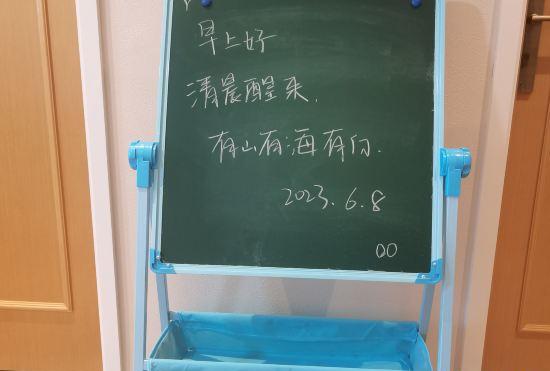 早上好
清晨醒来,
有山有海有你.
2023.6.8
00